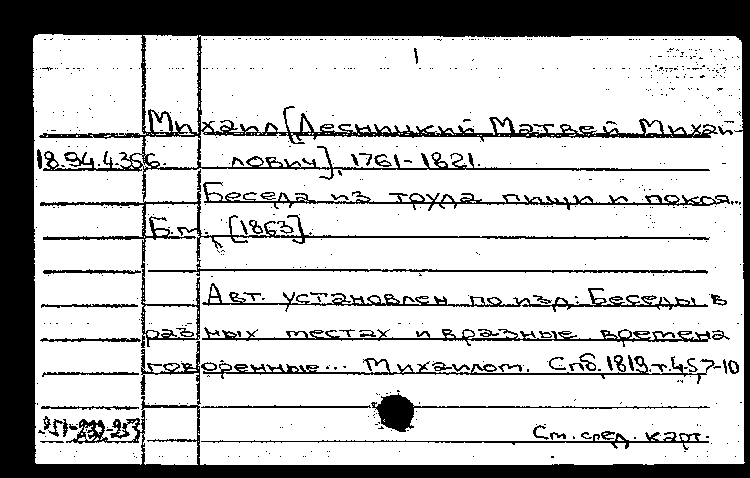 1
Михаил [Десницкий, Матвей Михай-
18.94.4.356. лович], 1761-1821.
Беседа из труда пищи и покоя.
Б.м., [1863].
Авт. установлен по изд: Беседы в
разных местах и в разные времена
говоренные... Михаилом. Спб, 1819. т. 4-5, 7-10
251-232-253 См. след. карт.